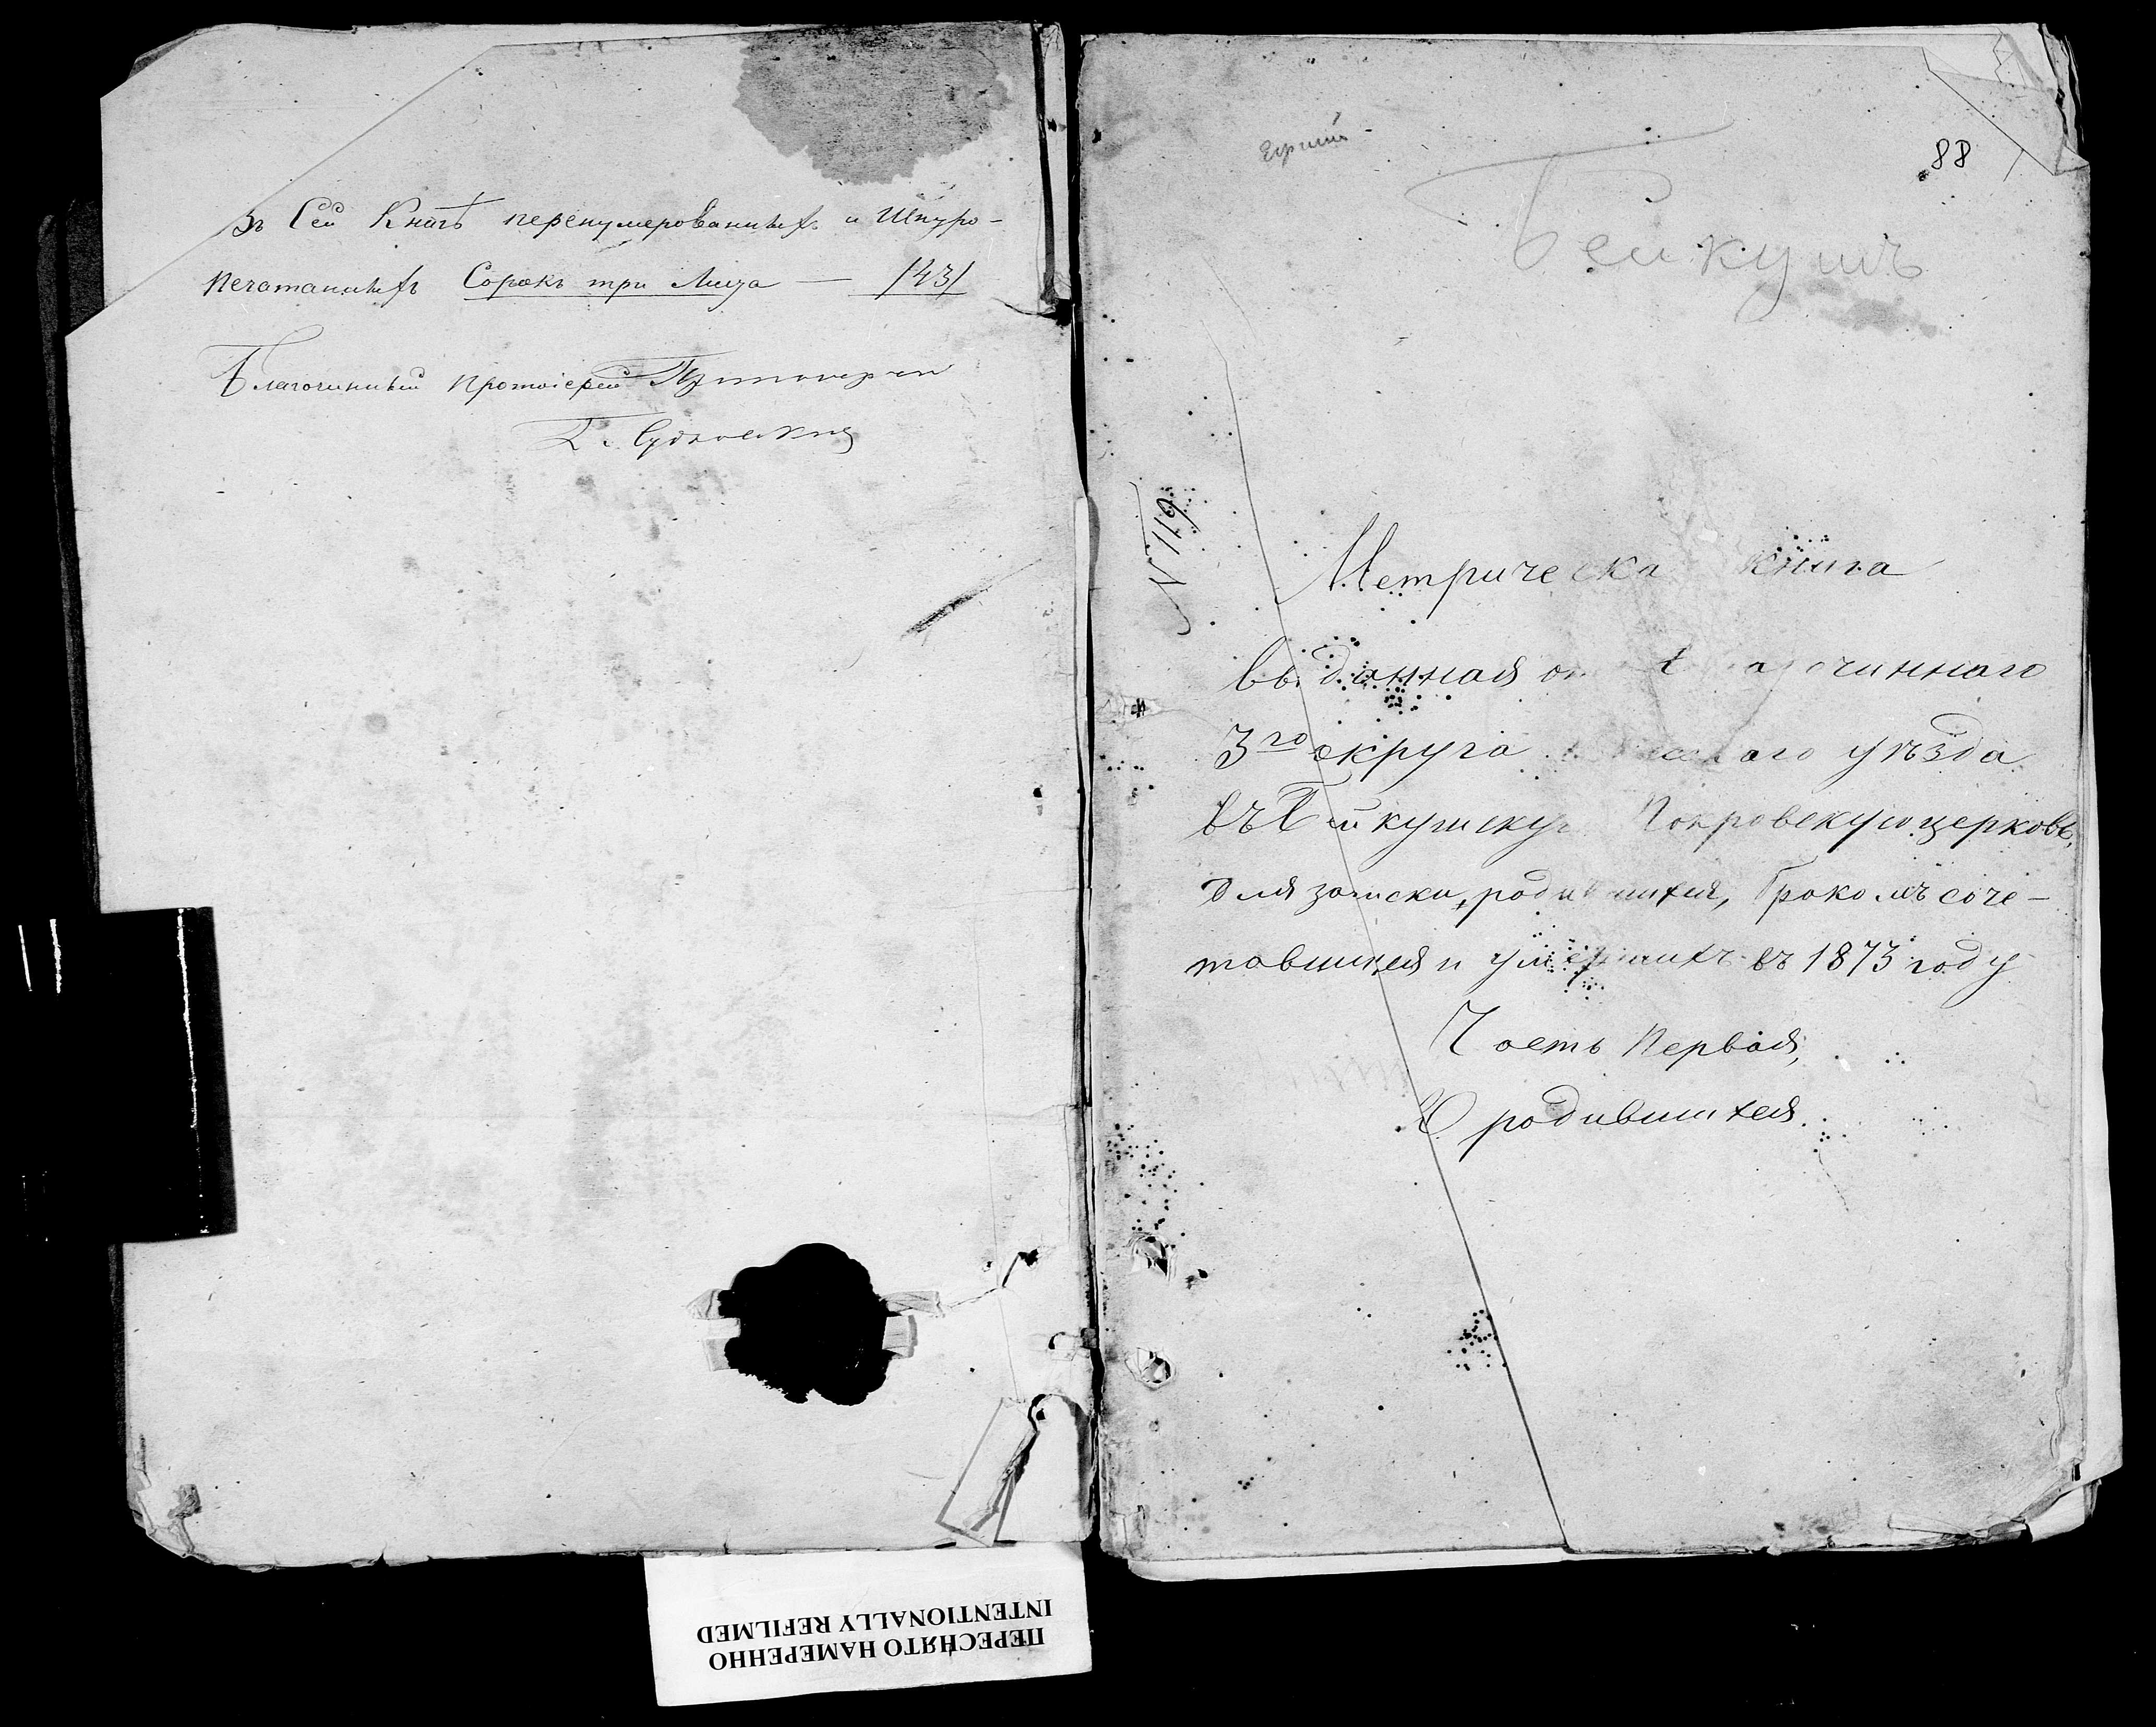 Въ Сей Книгѣ перенумерованныхъ и Шнуро-
печатанныхъ Сорокъ три Листа — /43/
Благочинный Протоіерей
Г. Судковскій
88
Бейкушъ
№ 116
Метрическа книга
выданная от Благочиннаго
3го округа Одесскаго уѣзда
въ Бейкушскую Покровскую церковь,
для записки, родившихся, бракомъ соче-
тавшихся и умершихъ въ 1873 году
Часть Первая,
О родившихся.
ПЕРЕСНЯТО НАМЕРЕННО
INTENTIONALLY REFILMED